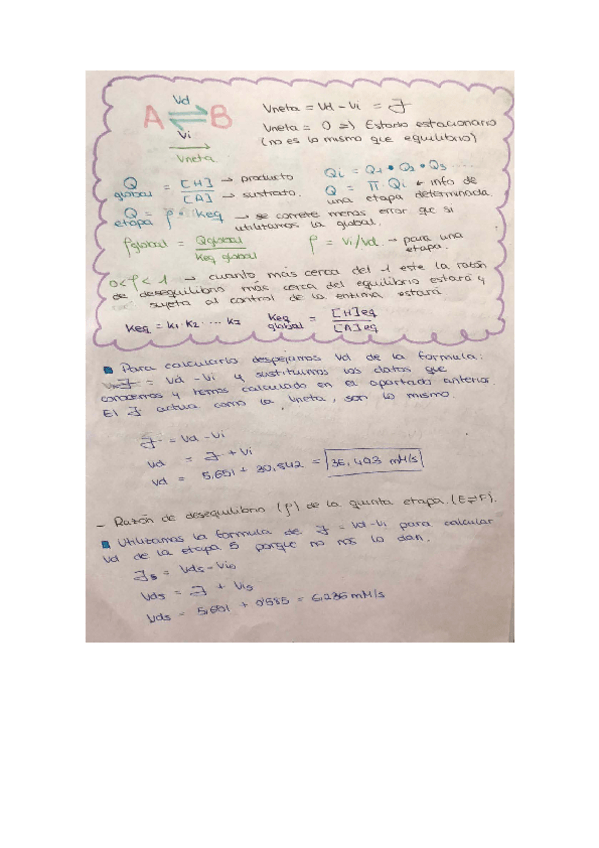 Vd
A ⇌ B
Vi
Vneta
Vneta = Vd - Vi = J
Vneta = 0 => Estado estacionario
(no es lo mismo que equilibrio)
Q global = [H] → producto
[A] → sustrato.
Qi = Q1 • Q2 • Q3 .....
Q = Π Qi * info de
una etapa determinada
Q etapa = ρ • Keq → se comete menos error que si
utilizamos la global.
ρglobal = Qglobal / Keq global
ρ = Vi/Vd → para una
etapa.
0 < ρ < 1 → cuanto más cerca del 1 este la razón
de desequilibrio más cerca del equilibrio estará y
sujeta al control de la enzima estará
Keq = K1 · K2 · ... K7
Keq global = [H]eq / [A]eq
Para calcularlo despejamos Vd de la formula:
J = Vd - Vi y sustituimos los datos que
conocemos y hemos calculado en el apartado anterior.
El J actua como la Vneta, son lo mismo.
J = Vd - Vi
Vd = J + Vi
Vd = 5,651 + 30,842 = 36,493 mM/s
- Razón de desequilibrio (ρ) de la quinta etapa. (E⇌F).
Utilizamos la formula de J = Vd - Vi para calcular
Vd de la etapa 5 porque no nos la dan.
J5 = Vd5 - Vi5
Vd5 = J + Vi5
Vd5 = 5,651 + 0'585 = 6,236 mM/s